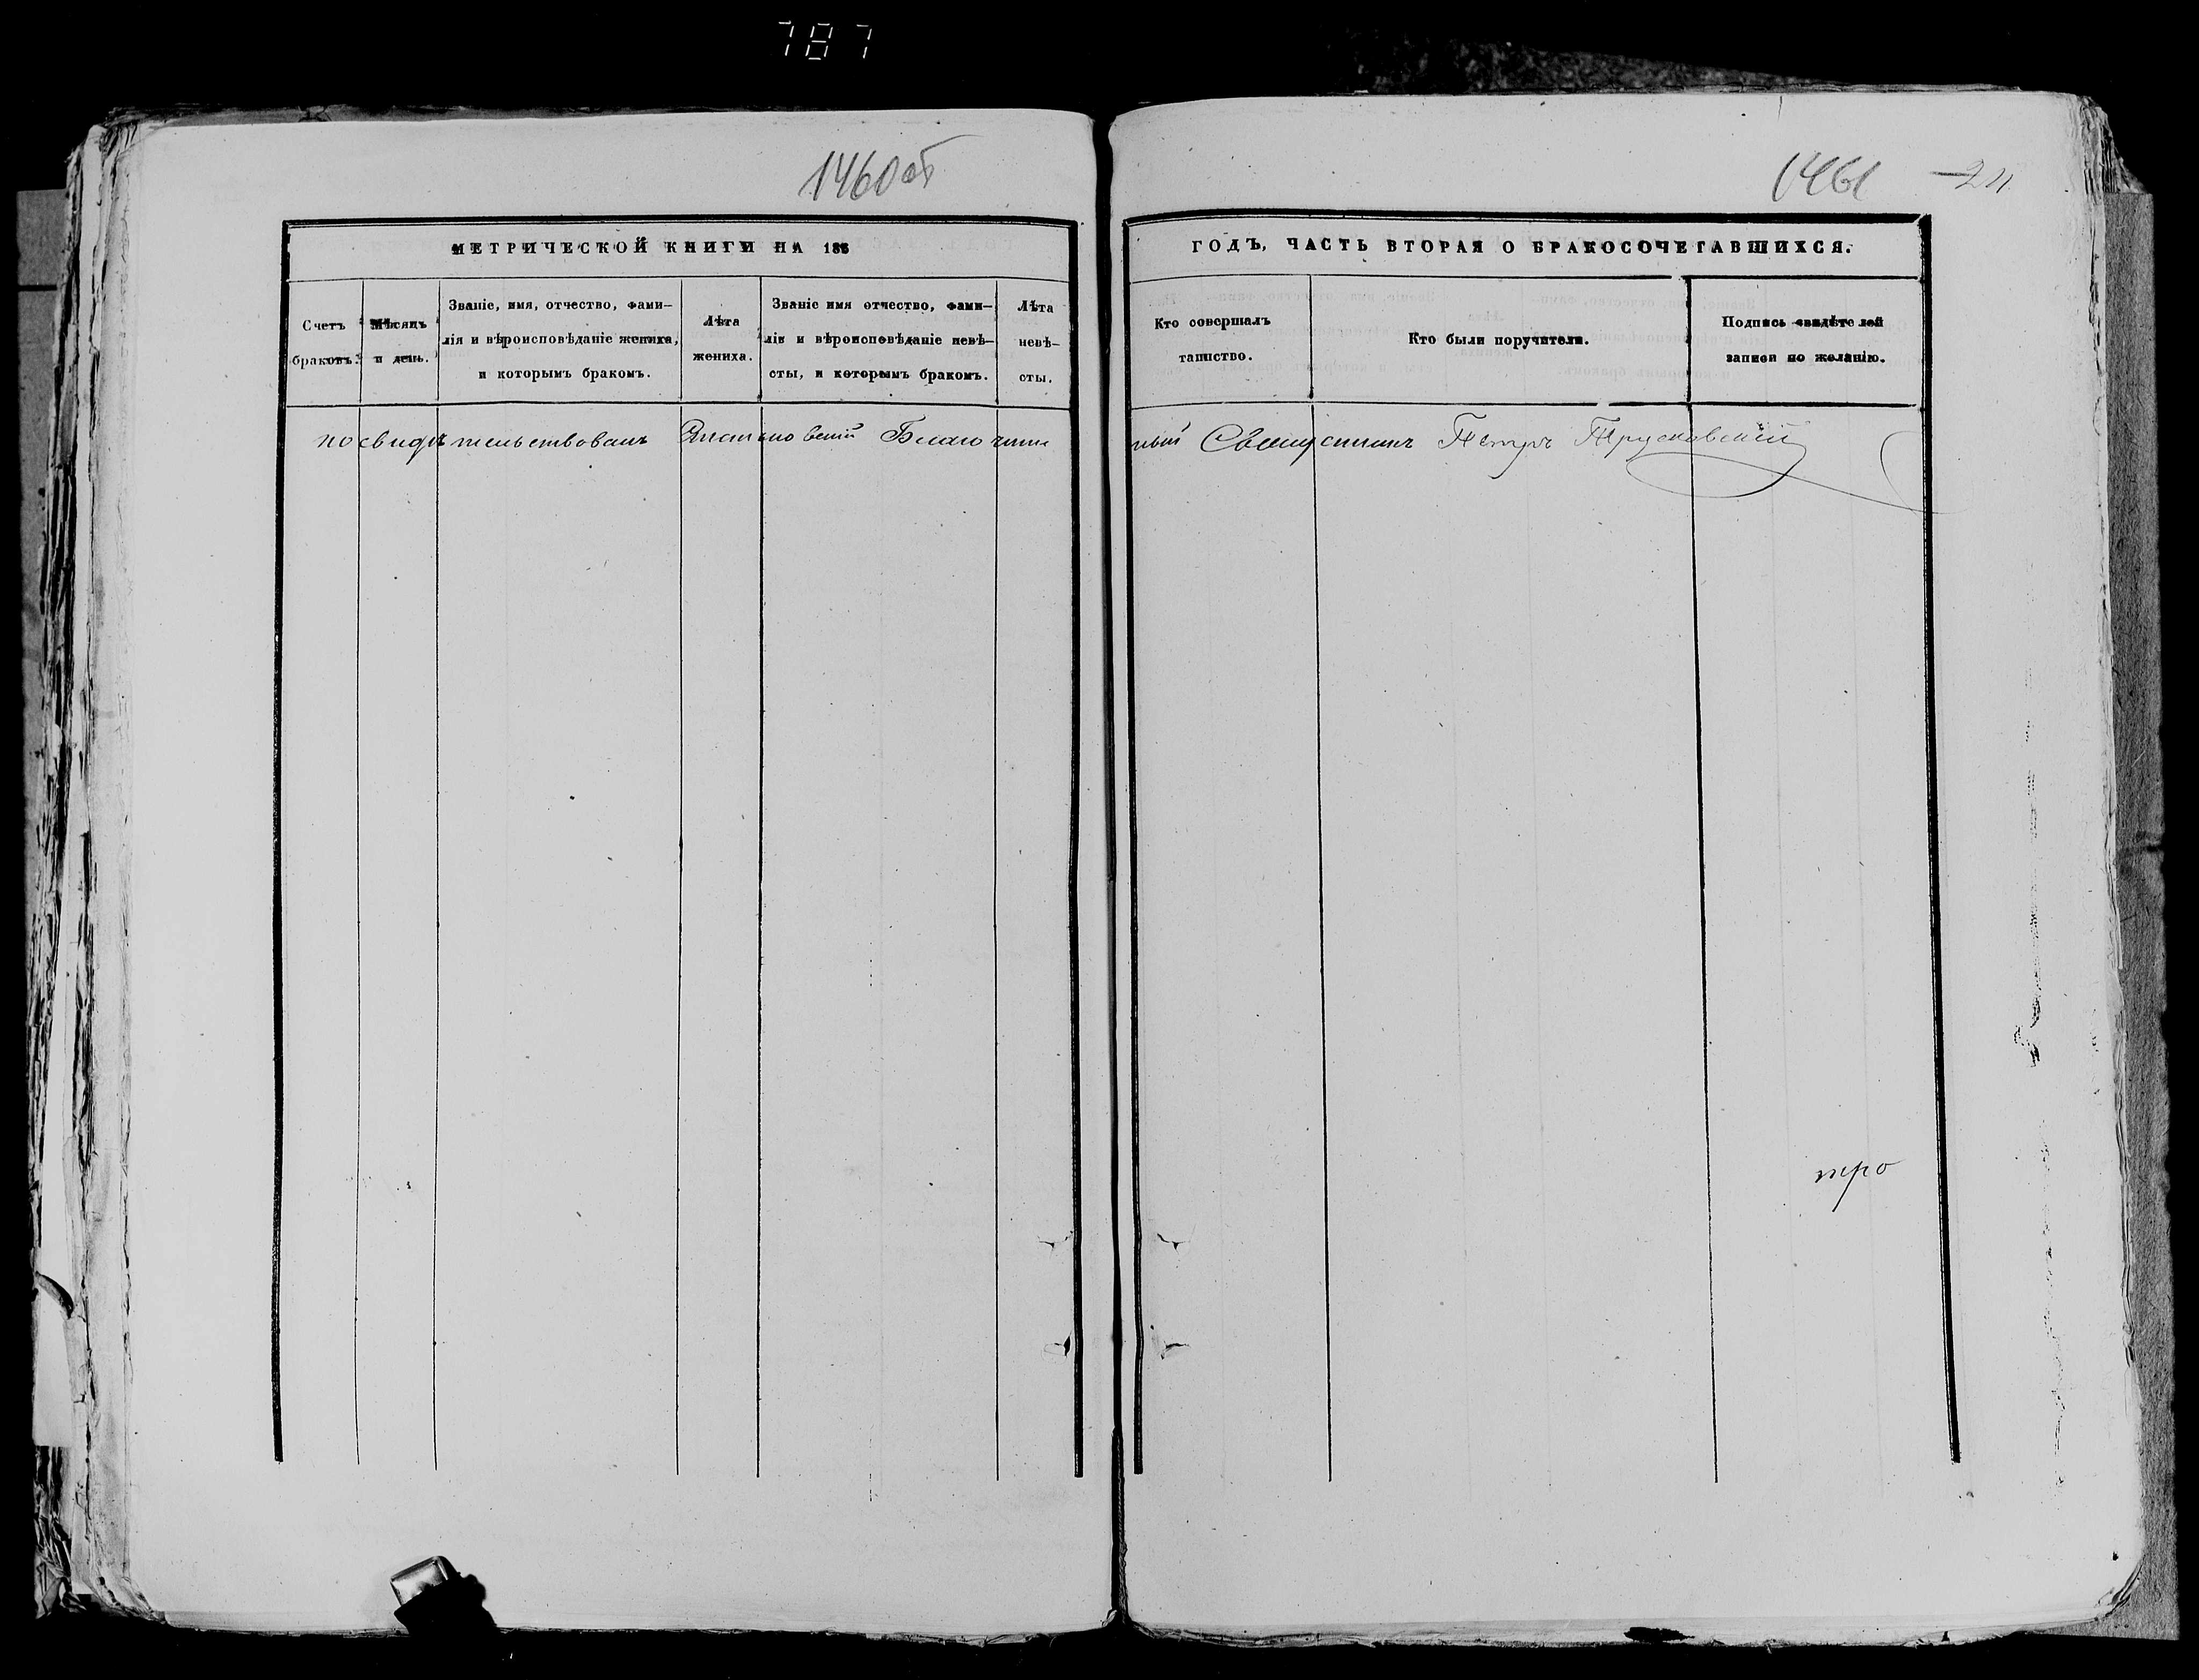 787
1460об
МЕТРИЧЕСКОЙ КНИГИ НА 185
Счетъ браковъ.
Мѣсяцъ и день.
Званіе, имя, отчество, фами-
лія и вѣроисповѣданіе жениха,
и которымъ бракомъ.
Лѣта
жениха.
Званіе имя отчество, фами-
лія и вѣроисповѣданіе невѣ-
сты, и которымъ бракомъ.
Лѣта
невѣ-
сты.
посвидѣтельствовалъ Благочин
1461
ГОДЪ, ЧАСТЬ ВТОРАЯ О БРАКОСОЧЕТАВШИХСЯ.
Кто совершалъ
таинство.
Кто были поручители.
Подпись свидѣтелей
записи по желанію.
ный Священникъ Петръ Трусковский
тро